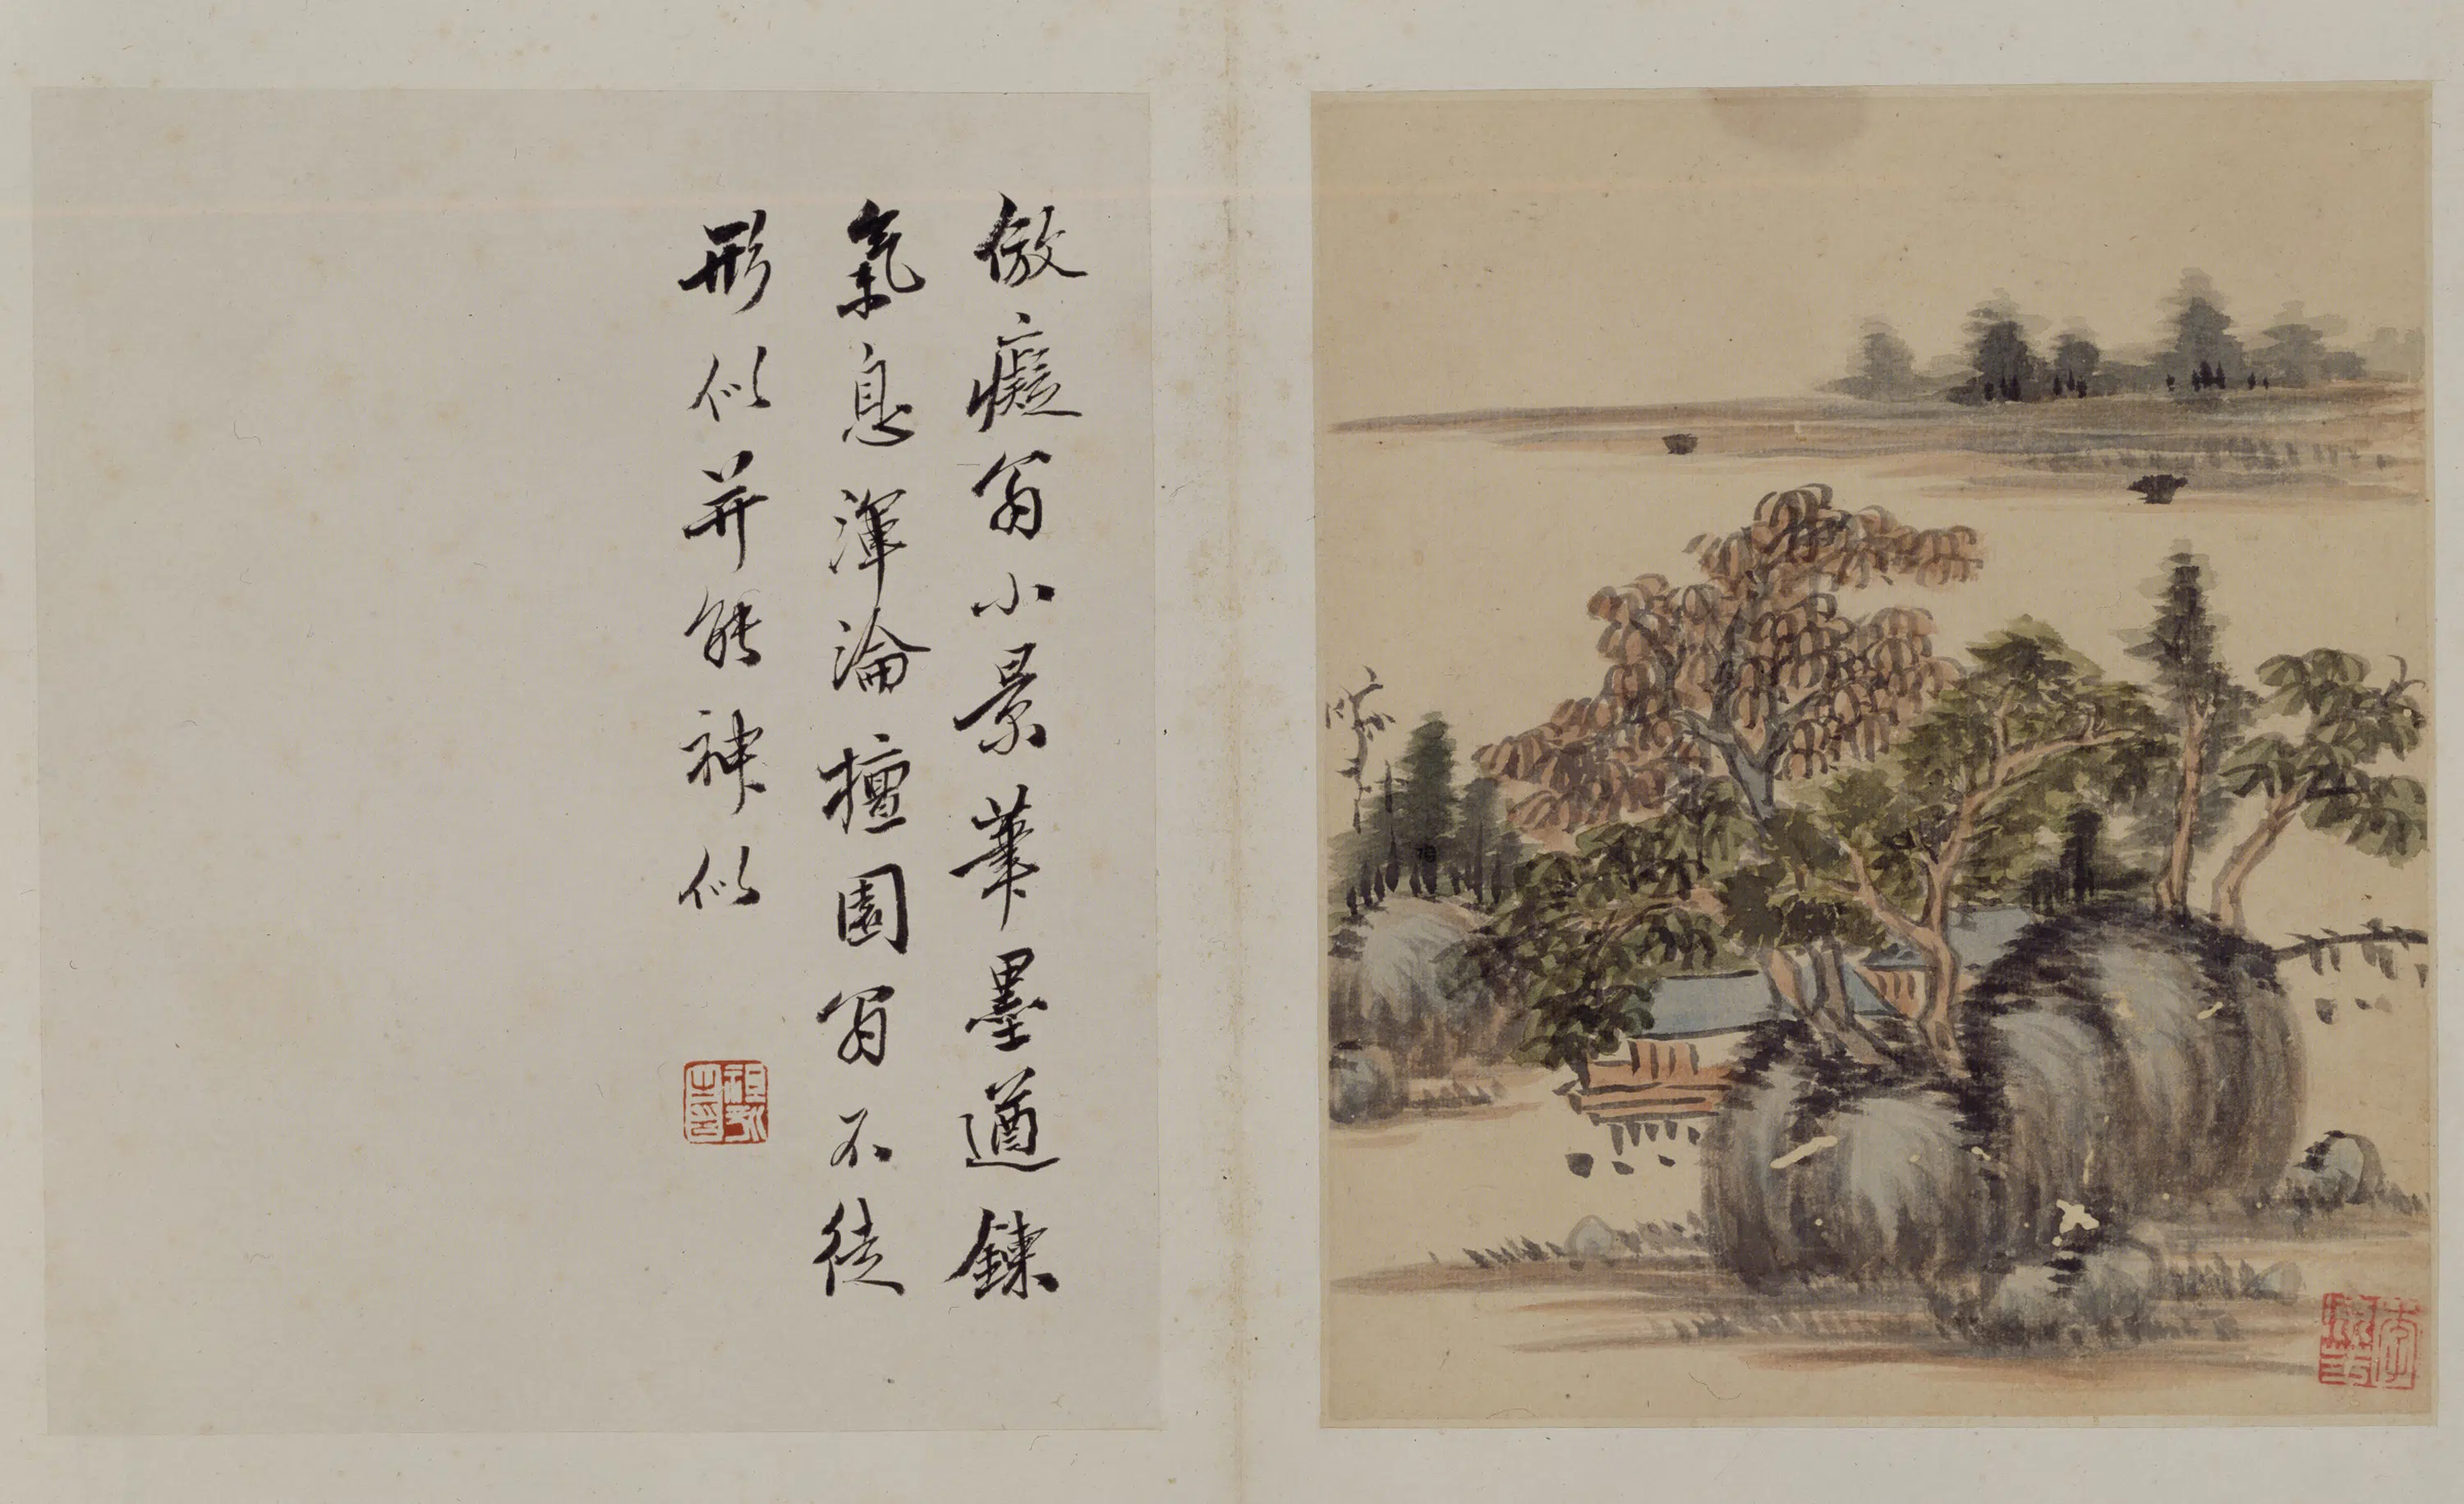 倣癡翁小景筆墨遒鍊
氣息渾淪檀園翁不徒
形似并能神似